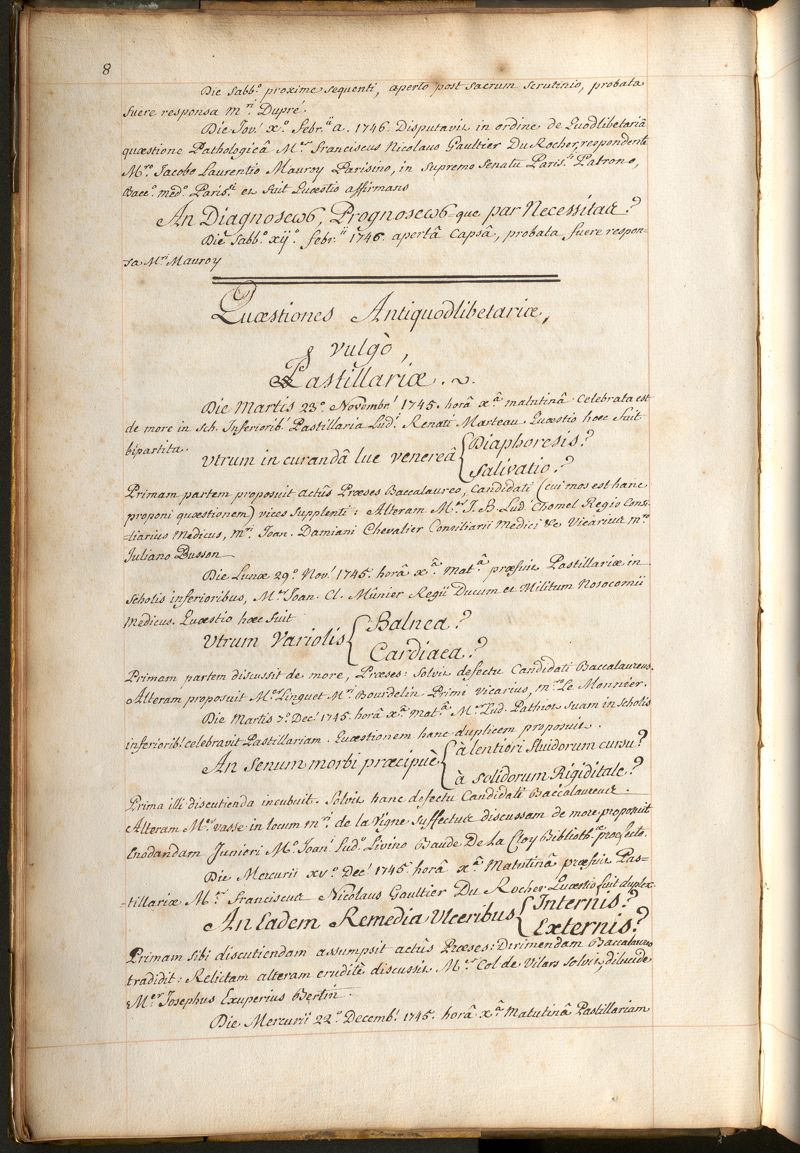 8
Die Sabb.º proxime sequenti, aperto post sacrum scrutinio, probata
fuere responsa m.ri Dupré.
Die Jov.i x.º febr.ii a. 1746. Disputavit in ordine de Quodlibetariâ
quæstione Pathologicâ M.er Franciscus Nicolaus Gaultier Du Rocher, respondente
M.ro Jacobo Laurentio Mauroy Parisino, in Supremo Senatu Paris.ti Patrono,
Bacc.º med.º Paris.ti et fuit Quæstio affirmans
An Diagnoseωs, Prognoseωs-que par Necessitas?
Die Sabb.º xij.º febr.ii 1746. apertâ Capsâ, probata fuere respon-
sa M.ri Mauroy
Quæstiones Antiquodlibetariæ,
vulgò,
Pastillariæ.
Die Martis 23.º Novembr.i 1745. horâ x.â matutinâ Celebrata est
de more in Sch. Inferiorib.s Pastillaria Lud.i Renati Marteau Quæstio hæc fuit
bipartita.
Utrum in curandâ lue venereâ { Diaphoresis?
Salivatio?
Primam partem proposuit actûs Præses Baccalaureo, Candidati (cui mos est hanc
proponi quæstionem) vices supplenti: Alteram M.er J. B. Lud. Chomel Regio Consi-
-liarius Medicus, m.ri Joan. Damiani Chevalier Consiliarii Medici &c Vicarius m.ro
Juliano Busson
Die Lunæ 29.º Nov.i 1745. horâ x.â Mat.â præfuit Pastillariæ in
scholis inferioribus, M.er Joan. Cl. Munier Regii Ducum et Militum Nosocomii
Medicus. Quæstio hæc fuit
Utrum Variolis { Balnea?
Cardiaca?
Primam partem discussit de more, Præses: Solvit defectu Candidati Baccalaureus.
Alteram proposuit M.er Linguet M.ri Bourdelin Primi Vicarius, m.ro Le Monnier.
Die Martis 7.º Dec.i 1745. horâ x.â Mat.â M.er Lud. Pathiot suam in scholis
inferiorib.s celebravit Pastillariam. Quæstionem hanc duplicem proposuit.
An Senum morbi præcipuè { à lentiori fluidorum cursu?
à solidorum Rigiditate?
Prima illi discutienda incubuit. Solvit hanc defectu Candidati Baccalaureus.
Alteram M.er Vasse in locum m.ri de la Vigne suffectus discussam de more proposuit
Enodandam Juniori M.ro Joan.i Lud.º Livino Baude De la Cloy Biblioth.æ præfecto.
Die Mercurii xv.º Dec.i 1745. horâ x.â Matutinâ præfuit Pas-
-tillariæ M.er Franciscus Nicolaus Gaultier Du Rocher Quæstio fuit duplex.
An Eadem Remedia Ulceribus { Internis?
Externis?
Primam sibi discutiendam assumpsit actûs Præses: Dirimendam Baccalaureo
tradidit: Relictam alteram eruditè discussit M.er Col de Vilars solvit, dilucidè
M.er Josephus Exuperius Bertin.
Die Mercurii 22.º Decemb.i 1745. horâ x.â Matutinâ Pastillariam